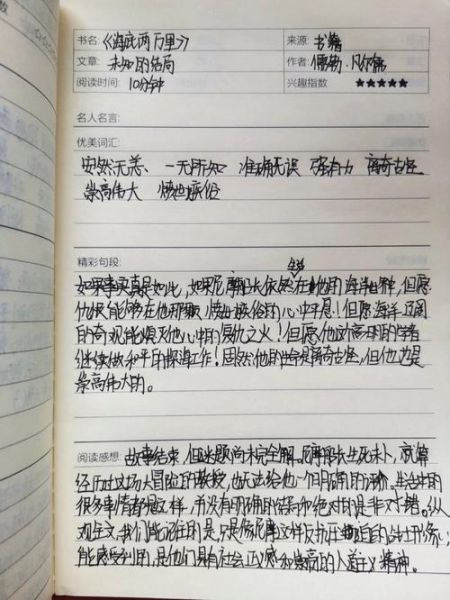 书名:《海底两万里》 来源: 书籍
文章: 未知的结局 作者: 儒勒·凡尔纳
阅读时间: 10分钟 兴趣指数 ★★★★★
名人名言:
优美词汇:
安然无恙、一无所知 准确无误 强有力 离奇古怪
崇高伟大 愤世嫉俗
精彩句段:
如果事实真是如此,如果尼摩船长依然在他的海洋世界,但愿
他能够在他那颗愤世嫉俗的心中平息!但愿海洋
的奇观能熄灭他心中的复仇之火!但愿他这高明的学者
继续做和平的探海工作!固然他的命离奇古怪,但他也是
崇高伟大的。
阅读感想: 故事结束,但谜题尚未完全解。尼摩船长生死未卜,就算
经历过这场大冒险的教授,也无法给他一个明确的评价。生活中的
很多事情都是这样,并没有明确的答案和绝对的是非对错。从
观主义,我们能记住的是,只是像尼摩这样反抗压迫的战士形象;
能感受到的,是他们具有社会正义感和崇高的人道主义精神。